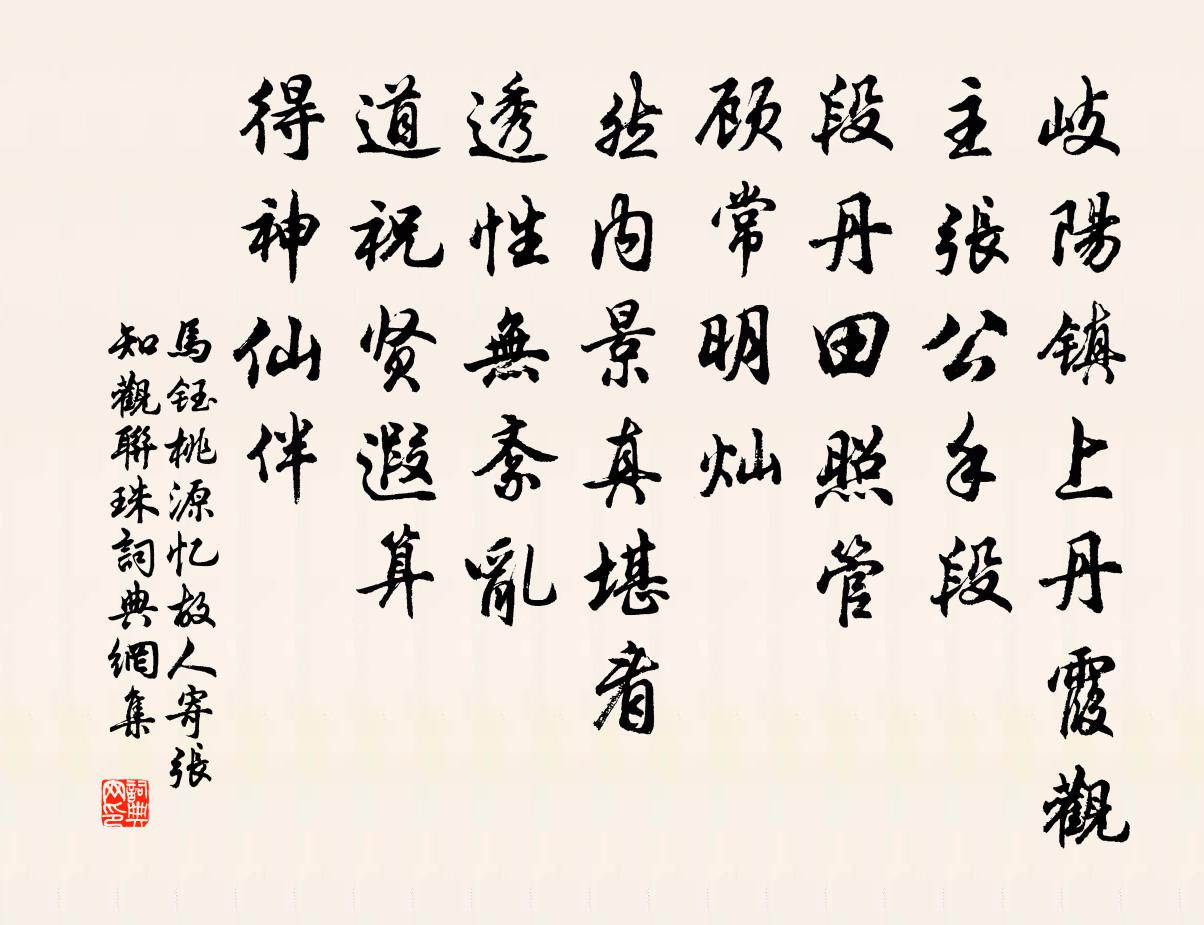 岐陽镇上丹霞觀
主張公手段
段丹田照管
顾常明灿
然内景真堪看
透性無紊亂
道祝贤遐算
得神仙伴
馬钰桃源忆故人寄張
知觀聯珠詞典網集
詞典
网印